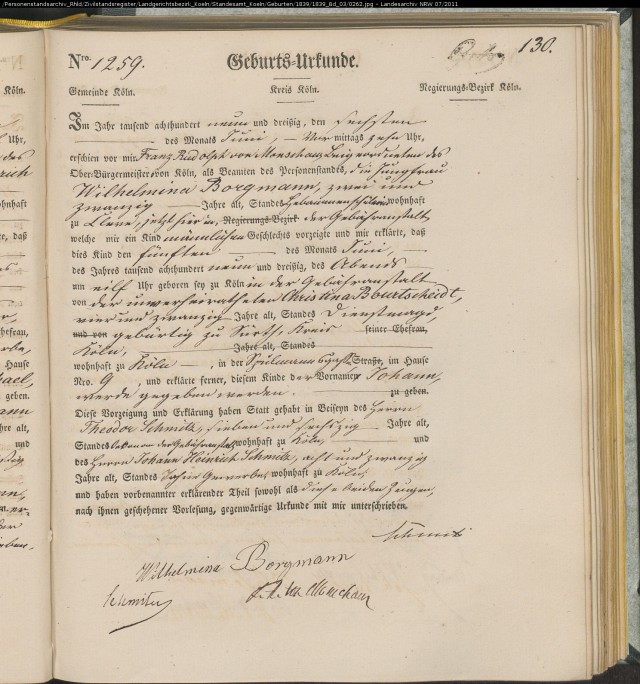 /Personenstandsarchiv_Rhld/Zivilstandsregister/Landgerichtsbezirk_Koeln/Standesamt_Koeln/Geburten/1839/1839_Bd_03/0262.jpg - Landesarchiv NRW 07/2011
130.
Nro. 1259. Geburts-Urkunde.
Gemeinde Köln. Kreis Köln. Regierungs-Bezirk Köln.
Im Jahr tausend achthundert neun und dreißig, den sechsten
des Monats Juni, Vormittags zehn Uhr,
erschien vor mir Franz Rudolph von Monschau Beigeordneten des
Ober-Bürgermeister von Köln, als Beamten des Personenstandes, die Jungfrau
Wilhelmina Borgmann, zwei und
zwanzig Jahre alt, Standes Hebammenschülerin, wohnhaft
zu Cleve, jetzt hier in, Regierungs-Bezirk der Gebäranstalt,
welche mir ein Kind männlichen Geschlechts vorzeigte und mir erklärte, daß
dies Kind den fünften des Monats Juni,
des Jahres tausend achthundert neun und dreißig, des Abends
um eilf Uhr geboren sey zu Köln in der Gebäranstalt
von der unverheiratheten Christina Bourtscheidt,
vier und zwanzig Jahre alt, Standes Dienstmagd
und von gebürtig zu Sürth, Kreis seiner Ehefrau,
Köln, Jahre alt, Standes
wohnhaft zu Köln, in der Spielmannsgasse Straße, im Hause
Nro. 9 und erklärte ferner, diesem Kinde der Vorname Johann,
werde gegeben werden. zu geben.
Diese Vorzeigung und Erklärung haben Statt gehabt in Beiseyn des Herrn
Theodor Schmitz, sieben und sechszig Jahre alt,
Standes der Gebäranstalt wohnhaft zu Köln und
des Herrn Johann Heinrich Schmitz, acht und zwanzig
Jahre alt, Standes ohne Gewerbe, wohnhaft zu Köln,
und haben vorbenannter erklärender Theil sowohl als diese beiden Zeugen,
nach ihnen geschehener Vorlesung, gegenwärtige Urkunde mit mir unterschrieben.
Schmitz
Wilhelmina Borgmann
Schmitz